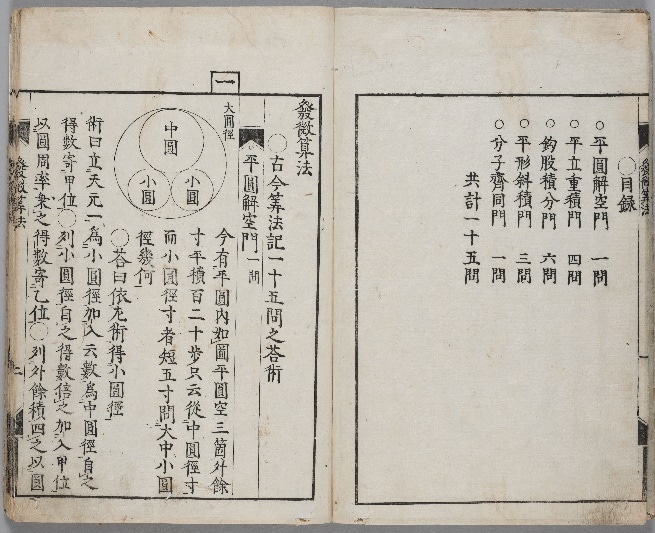 〇目録
〇平圓解空門 一問
〇平立重積門 四問
〇鈎股積分門 六問
〇平形斜積門 三問
〇分子齊同門 一問
共計一十五問
發微算法
發微算法
〇古今算法記一十五問之荅術
平圓解空門 一問
今有平圓内如圖平圓空三箇外餘
寸平積百二十歩只云從中圓徑寸
而小圓徑寸者短五寸問大中小圓
徑幾何
〇荅曰依左術得小圓徑
術曰立天元一為小圓徑加入云數為中圓徑自之
得數寄甲位〇列小圓徑自之得數倍之加入甲位
以圓周率乗之得數寄乙位〇列外餘積四之以圓
一
大圓徑
中圓
小圓
小圓
發微算法
二